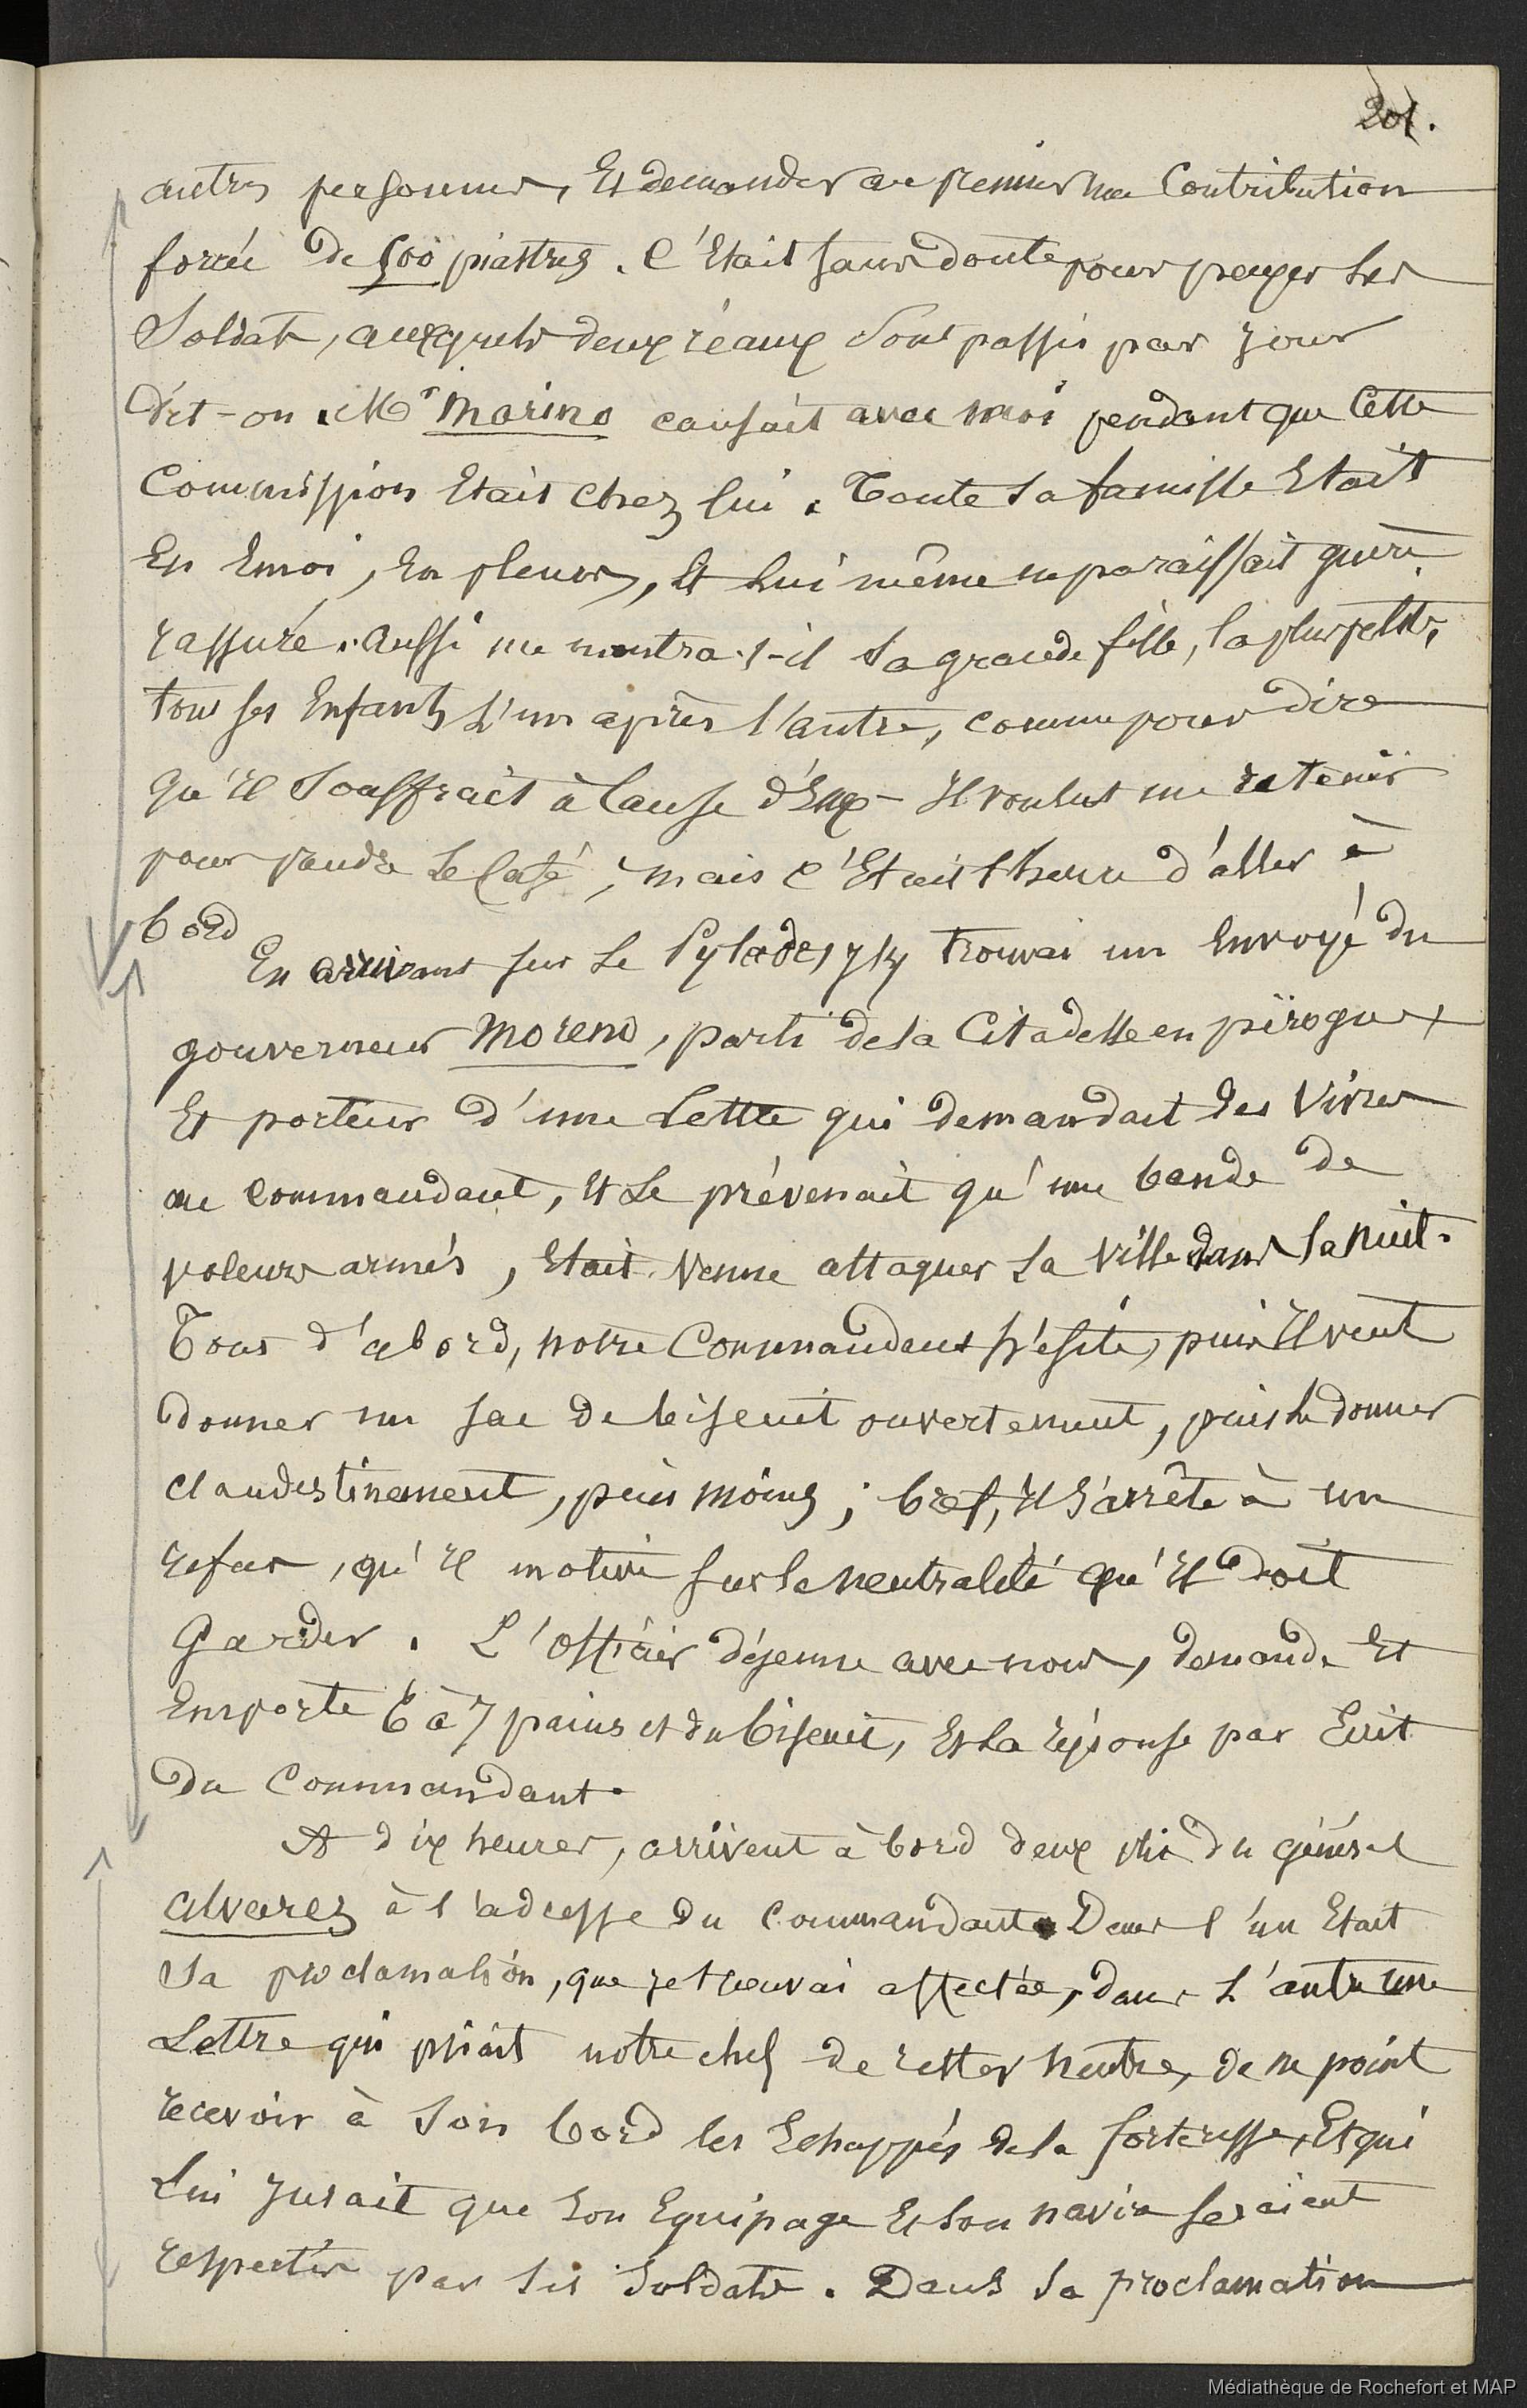 201.
autres personnes, Et demander au premier une Contribution
forcée de 500 piastres. C'Etait sans doute pour payer Ses
Soldats, auxquels deux réaux Sont passés par jour
dit-on. Mr Marino causait avec moi pendant que Cette
Commission Etait chez lui. Toute Sa famille Etait
En Emoi, En pleurs, Et Lui même ne paraissait guère
rassuré. aussi me montra-t-il Sa grande fille, la plus petite,
tous ses Enfants L'un après l'autre, comme pour dire
qu'Il Souffrait à Cause d'Eux - Il voulut me retenir
pour prendre Le Café, mais C'Etait l'heure d'aller à
bord
En arrivant sur Le Pylade, j'y trouvai un Envoyé du
gouverneur Moreno, parti de la Citadelle en pirogue
Et porteur d'une Lettre qui demandait des Vivres
au Commandant, Et Le prévenait qu'une bande de
voleurs armés, Etait Venue attaquer La Ville dans la Nuit.
Tout d'abord, notre Commandant hésite, puis Il veut
donner un sac de biscuit ouvertement, puis Le donner
clandestinement, puis moins ; bref, Il s'arrête à un
refus, qu'Il motive sur la neutralité qu'Il doit
Garder. L'officier déjeune avec nous, demande Et
Emporte 6 à 7 pains et du biscuit, Et La réponse par Ecrit
Du Commandant.
A dix heures, arrivent à bord deux plis du général
Alvarez à l'adresse du Commandant. Dans l'un Etait
Sa proclamation, que je trouvai affectée, dans L'autre une
Lettre qui priait notre chef de rester neutre, de ne point
recevoir à Son bord les Echappés de la forteresse, Et qui
Lui jurait que Son Equipage Et Son navire seraient
respectés par Ses Soldats. Dans Sa proclamation
Médiathèque de Rochefort et MAP